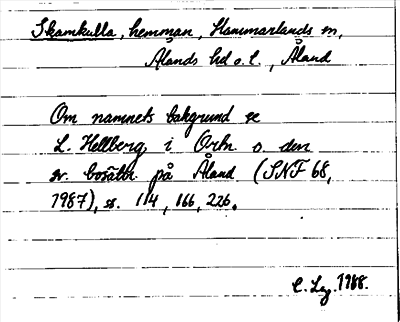 Skamkulla, hemman, Hammarlands sn,
Ålands hd o. l., Åland
Om namnets bakgrund se
L. Hellberg i Ortn o. den
sv. bosättn på Åland (SNF 68,
1987), ss. 114, 166, 226.
1988.